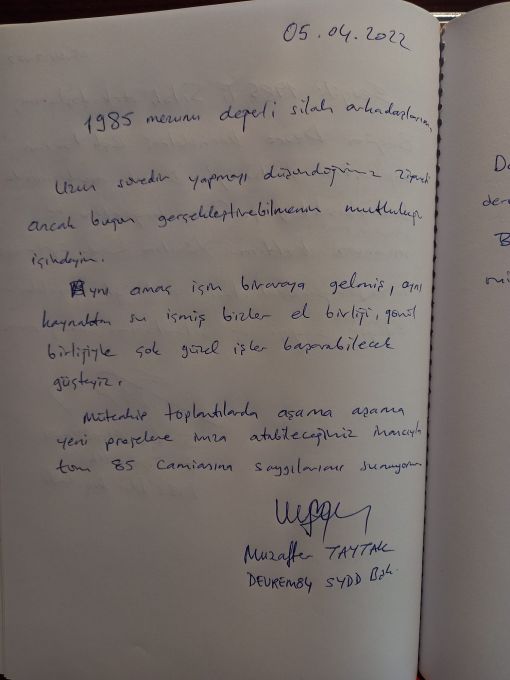 05.04.2022
1985 mezunu değerli silah arkadaşlarım,
Uzun süredir yapmayı düşündüğümüz ziyareti
ancak bugün gerçekleştirebilmenin mutluluğu
içindeyim.
Aynı amaç için biraraya gelmiş, aynı
kaynaktan su içmiş bizler el birliği, gönül
birliğiyle çok güzel işler başarabilecek
güçteyiz.
Müteakip toplantılarda aşama aşama
yeni projelere imza atabileceğimiz inancıyla
tüm 85 Camiasına saygılarımı sunuyorum
Muzaffer TAYTAK
DEVREM84 SYDD Bşk.
Da
B